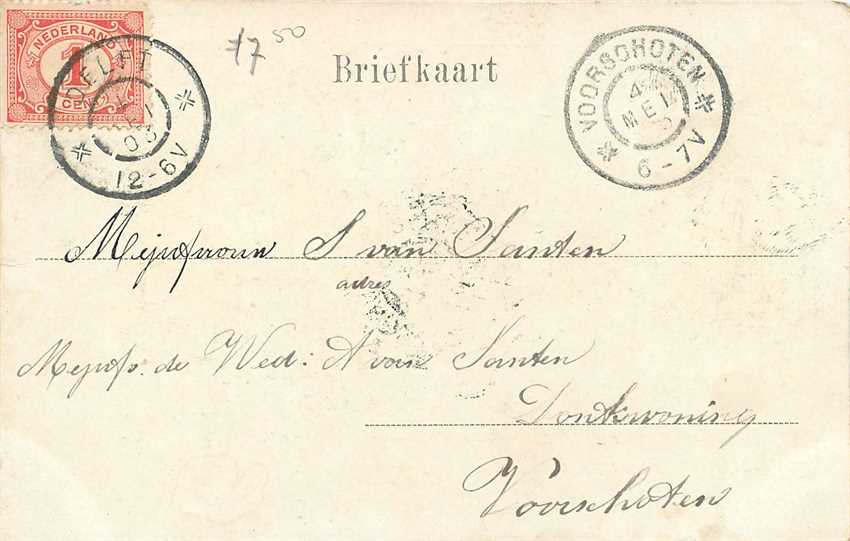 NEDERLAND
1
CENT
DELFT
03
12-6V
17 50
Briefkaart
VOORSCHOTEN
4
MEI
6-7V
Mejufvrouw S van Santen
adres
Mejufv. de Wed: A van Santen
Donkwoning
Voorschoten